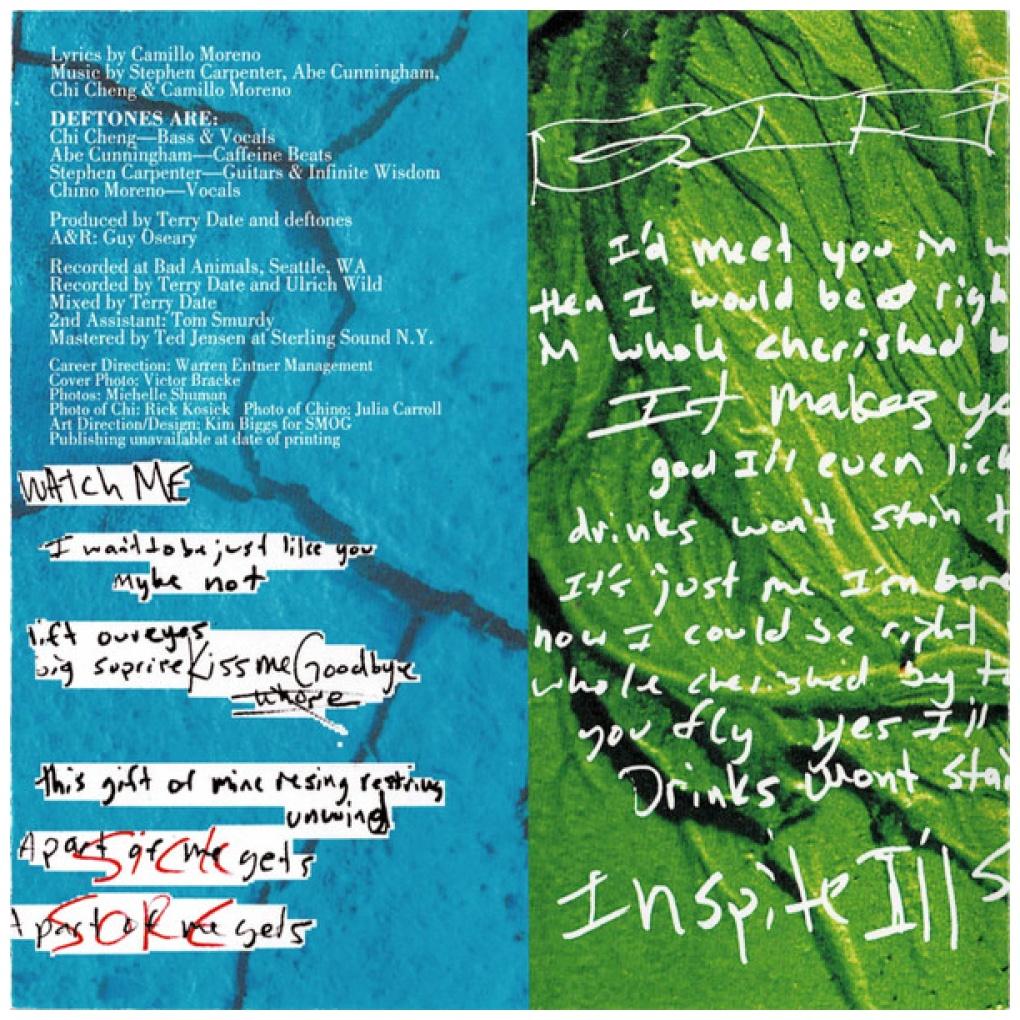 Lyrics by Camillo Moreno
Music by Stephen Carpenter, Abe Cunningham,
Chi Cheng & Camillo Moreno
DEFTONES ARE:
Chi Cheng—Bass & Vocals
Abe Cunningham—Caffeine Beats
Stephen Carpenter—Guitars & Infinite Wisdom
Chino Moreno—Vocals
Produced by Terry Date and deftones
A&R: Guy Oseary
Recorded at Bad Animals, Seattle, WA
Recorded by Terry Date and Ulrich Wild
Mixed by Terry Date
2nd Assistant: Tom Smurdy
Mastered by Ted Jensen at Sterling Sound N.Y.
Career Direction: Warren Entner Management
Cover Photo: Victor Bracke
Photos: Michelle Shuman
Photo of Chi: Rick Kosick Photo of Chino: Julia Carroll
Art Direction/Design: Kim Biggs for SMOG
Publishing unavailable at date of printing
WAtch ME
I want to be just like you
Mybe not
lift our eyes
big suprire Kiss me Goodbye
whore
this gift of mine resing
unwind
A part of me gets
SICK
A part of me gets
SORE
I'd meet you in w
then I would be righ
M whole cherished b
It makes yo
god I'll even lick
drinks won't stain t
It's just me I'm bore
now I could be right
whole cherished by t
you fly yes I'll
Drinks wont stai
Inspite I'll S